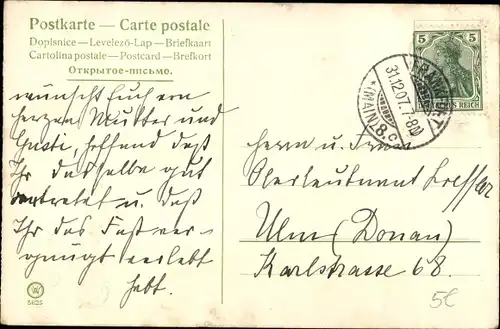 Postkarte — Carte postale
Dopisnice — Levelező-Lap — Briefkaart
Cartolina postale — Postcard — Brefkort
Открытое-письмо.
wünscht Euch von
herzen Mutter und
hoffend daß
Ihr dasselbe gut
u. daß
Ihr das Fest ver-
gnügt verlebt
habt.
5
DEUTSCHES REICH
FRANKFURT
31.12.07. 7-8N
*(MAIN) 8.c.
Herrn u. Frau
Oberleutnant Loeffler
Ulm (Donau)
Karlstrasse 68.
5625
5£